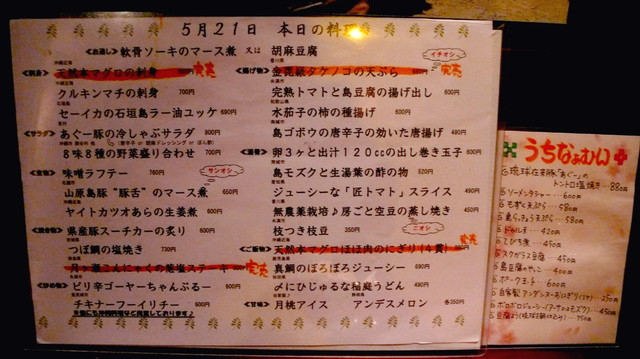 5月21日　本日の料理
<お通し>軟骨ソーキのマース煮 又は 胡麻豆腐
<刺身>天然本マグロの刺身 完売
クルキンマチの刺身 700円
セーイカの石垣島ラー油ユッケ 690円
<サラダ>あぐー豚の冷しゃぶサラダ 800円
8味8種の野菜盛り合わせ 700円
味噌ラフテー 760円
サンオシ
山原島豚"豚舌"のマース煮 650円
ヤイトカツオあらの生姜煮 600円
県産豚スーチカーの炙り 650円
つぼ鯛の塩焼き 730円
月ヶ瀬こんにゃくの葉塩ステーキ 完売
<炒め物>ピリ辛ゴーヤーちゃんぷるー 600円
チキナーフーイリチー 600円
イチオシ
<揚げ物>金昆羅タケノコの天ぷら 完売
完熟トマトと島豆腐の揚げ出し 600円
水茄子の柿の種揚げ 600円
島ゴボウの唐辛子の効いた唐揚げ 490円
卵3ヶと出汁120ccの出し巻き玉子 600円
島モズクと生湯葉の酢の物 520円
ジューシーな「匠トマト」スライス 490円
無農薬栽培♪房ごと空豆の蒸し焼き 450円
枝つき枝豆 350円
ニオシ
<ご飯物>天然本マグロほほ肉のにぎり(4貫) 完売
真鯛のぼろぼろジューシー 600円
〆にひじゅるな稲庭うどん 490円
<甘味>月桃アイス　アンデスメロン 各350円
うちなぁむん
琉球在来豚「あぐー」の
トントロ塩焼き…880円
ソーメンタラシャー…600円
もずく天ぷら…580円
島らっきょう天ぷら…580円
どぅる天…450円
てびち煮…450円
スクガラス豆腐…450円
島豆腐のやっこ…400円
ポーク玉子…600円